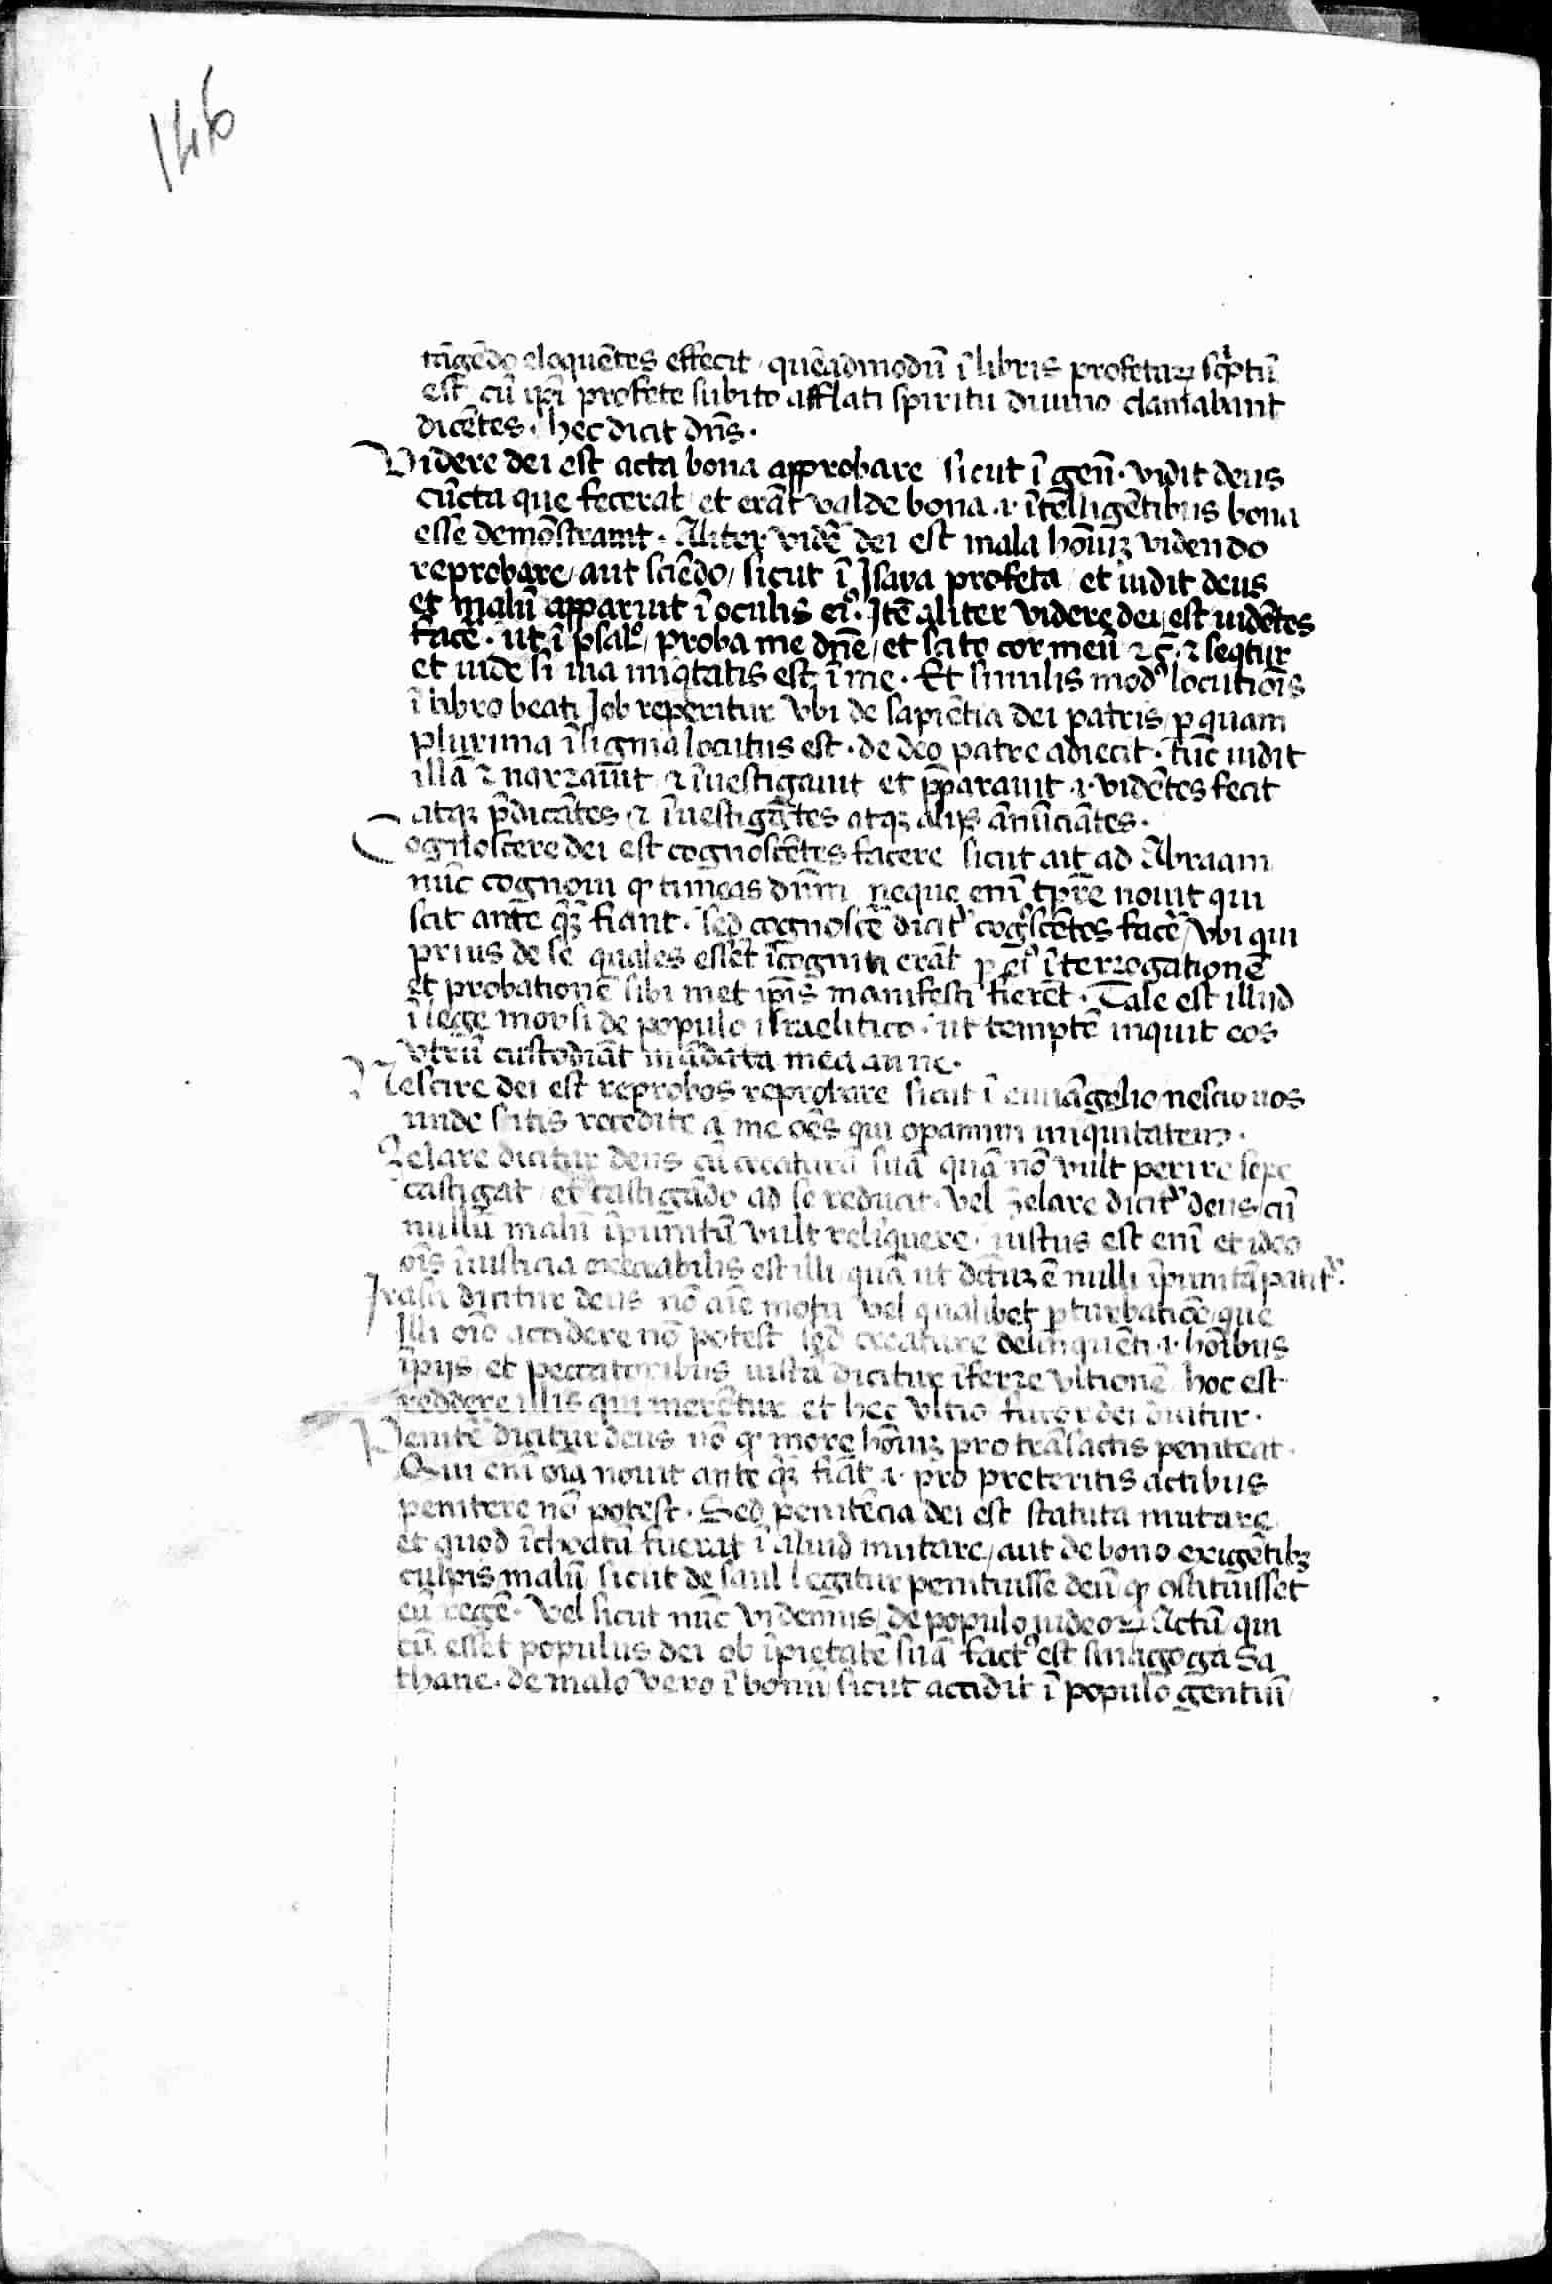 146
tāgēdo eloquētes effecit · quēadmodū ī libris profetaꝝ scͥptū
est cū ip̄i profete subito afflati spiritu diuino clamabant
dicētes · hec dicit dn̄s ·
Videre dei est acta bona approbare sicut ī gen̄ · vidit deus
cūcta que fecerat et erāt valde bona ·i· ītelligētibus bona
esse demōstrauit · Aliter vider̄ dei est mala hoīuꝫ videndo
reprobare / aut sciēdo / sicut ī Isaya profeta / et uidit deus
et malū apparuit ī oculis eiꝰ · Itē aliter videre dei est uidētes
facē · ut ī psalº / proba me dn̄e / et scito cor meū ⁊c̄ · ⁊ seqͥtur
et uide si uia iniqͥtatis est ī me · Et similis modꝰ locutiōis
ī libro beati Job reperitur vbi de sapiētia dei patris ꝑ quam
plurima īsignia locutus est · de deo patre adiecit · tūc uidit
illā ⁊ narrauit ⁊ īuestigauit et p̄parauit ·i· vidētes fecit
atqꝫ p̄dicātes ⁊ īuestigātes atqꝫ alijs ānūciātes ·
Cognoscere dei est cognoscētes facere sicut ait ad Abraam
nūc cognoui ꝙ timeas dn̄m neque enī tp̄re nouit qui
scit ante qͣꝫ fiant · sed cognoscē dicitͬ cogͦscētes facē / vbi qui
prius de se quales essēt īcogniti erāt ꝑ eiꝰ īterrogationē
et probationē sibi met ip̄is manifesti fierēt · Tale est illud
ī lege moysi de populo israelitico · ut temptē inquit eos
vtrū custodiāt mādata mea an ne ·
Nescire dei est reprobos reprobare sicut ī euuāgelio / nescio uos
unde sitis recedite a me oēs qui operamini iniquitatem ·
Zelare dicitur deus cū creaturā suā quā nō vult perire sepe
castigat et castigādo ad se reducit · vel zelare dicitͬ deus / cū
nullū malū īpunitū vult relīquere · iustus est enī et ideo
oīs īiusticia execrabilis est illi quā ut dictuꝫ ē nulli īpunitā patitͬ ·
Irasci dicitur deus nō aīe motu vel qualibet ꝑturbatiōe que
illi oīo accidere nō potest sed creature delinquēti ·i· hoībus
īpijs et peccatoribus iustā dicitur īferre vltionē hoc est
reddere illis qui merētur et hec vltio furor dei dicitur ·
Penitē dicitur deus nō ꝙ more hoīuꝫ pro trāsactis peniteat ·
Qui enī oīa nouit ante qͣꝫ fiāt ·i· pro preteritis actibus
penitere nō potest · Sed penitēcia dei est statuta mutare
et quod īchoatū fuerit ī aliud mutare / aut de bono exigētibꝫ
culpis malū sicut de saul legitur penituisse deū ꝙ ↄstituisset
eū regē · vel sicut nūc videmus / de populo iudeoꝝ Actū qui
cū esset populus dei ob īpietatē suā factꝰ est sinagoga Sa
thane · de malo vero ī bonū / sicut accidit ī populo gentiū